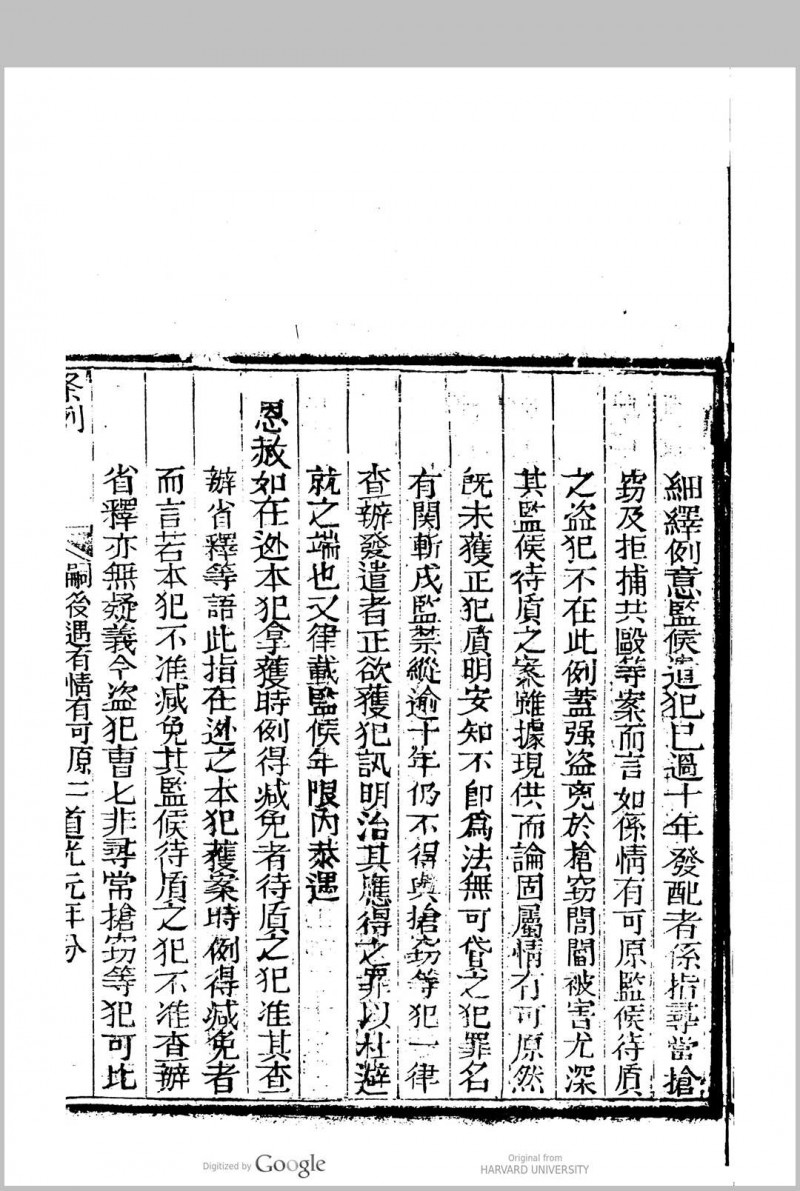 細繹例意監候遣犯已過十年發配者係指尋常搶
竊及拒捕共毆等案而言如係情有可原監候待質
之盜犯不在此例蓋强盜兇於搶竊閭閻被害尤深
其監候待質之案雖據現供而論固屬情有可原然
旣未獲正犯質明安知不卽爲法無可貸之犯罪名
有関斬戍監禁縱逾十年仍不得與搶竊等犯一律
查辦發遣者正欲獲犯訊明治其應得之罪以杜避
就之端也又律載監候年限內恭遇
恩赦如在迯本犯拿獲時例得减免者待質之犯准其查
辦省釋等語此指在迯之本犯獲案時例得减免者
而言若本犯不准减免其監候待質之犯不准查辦
省釋亦無疑義今盜犯曹七非尋常搶竊等犯可比
条例 嗣後遇有情有可原 二 道光元年分
Digitized by Google
Original from
HARVARD UNIVERSITY